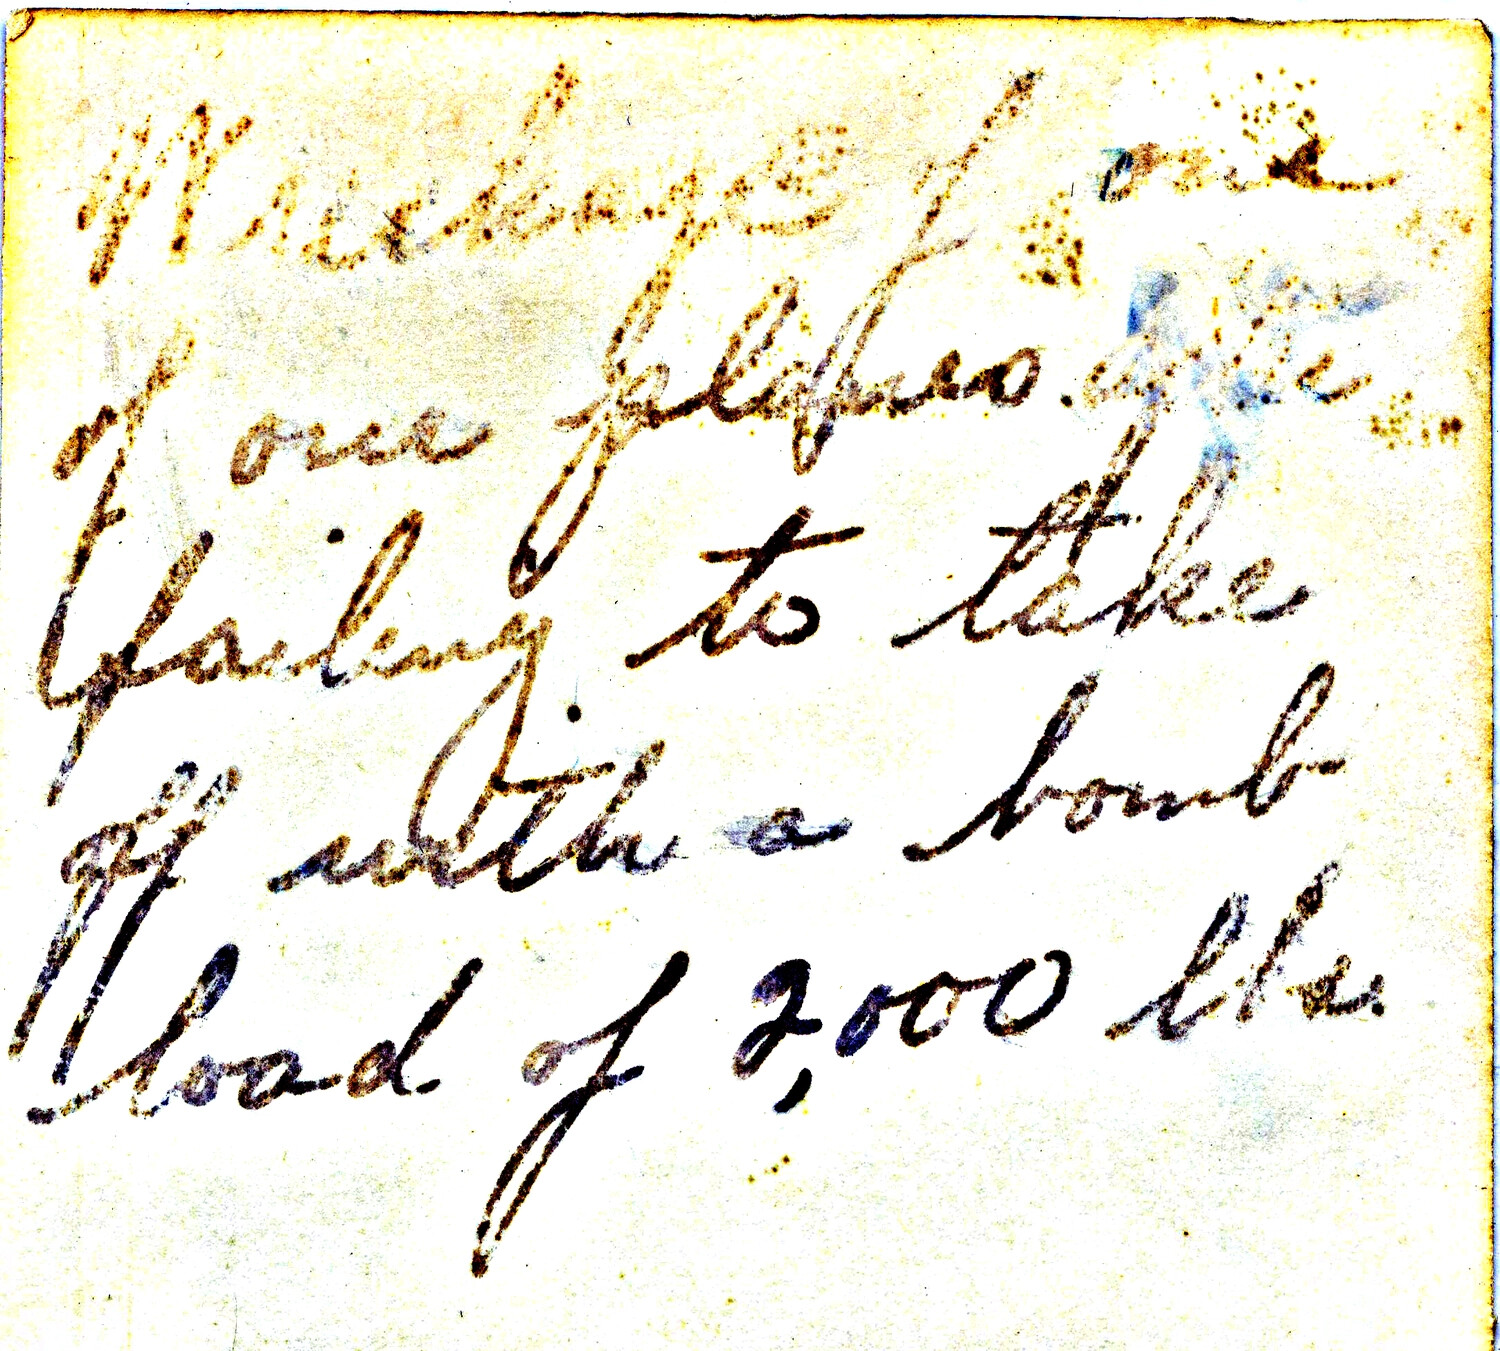 Wreckage of one
of our planes
failing to take
off with a bomb
load of 2,000 lbs.